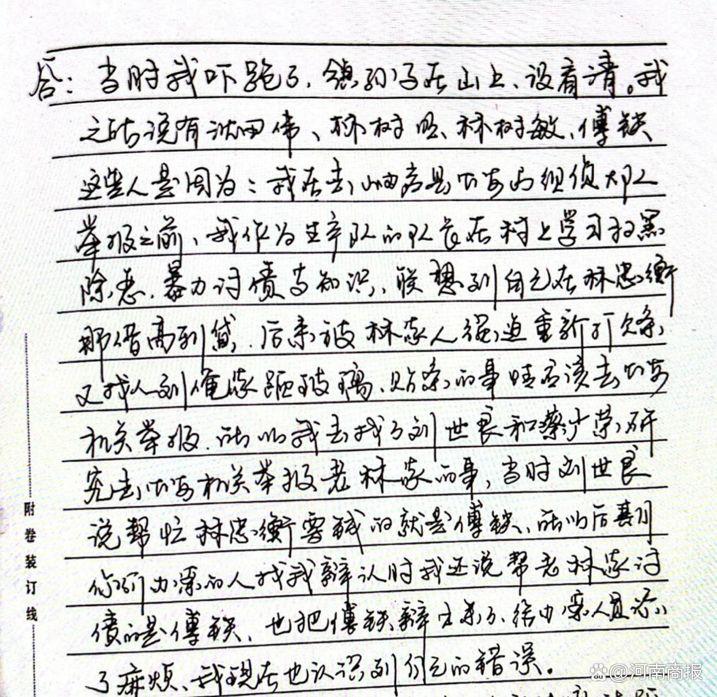 答：当时我吓跑了，领孙子在山上，没看清。我
之所说有沈田伟、林树臣、林树敏、傅铁
这些人是因为：我在去岫岩县公安局组侦大队
举报之前，我作为生产队的队长在村上学习扫黑
除恶，暴力讨债等知识，联想到自己在林忠衡
那借高利贷，后来被林家人强迫重新打欠条，
又找人到俺家砸玻璃，贴条的事吐应该去公安
机关举报，所以我去找了刘世良和蔡广荣研
究去公安机关举报老林家的事，当时刘世良
说帮忙林忠衡要钱的就是傅铁，所以后期
你们办案的人找我辩认时我还说帮老林家讨
债的是傅铁，也把傅铁辩出来了，给办案人员添
了麻烦，我现在也认识到自己的错误。
附卷装订线
河南商报